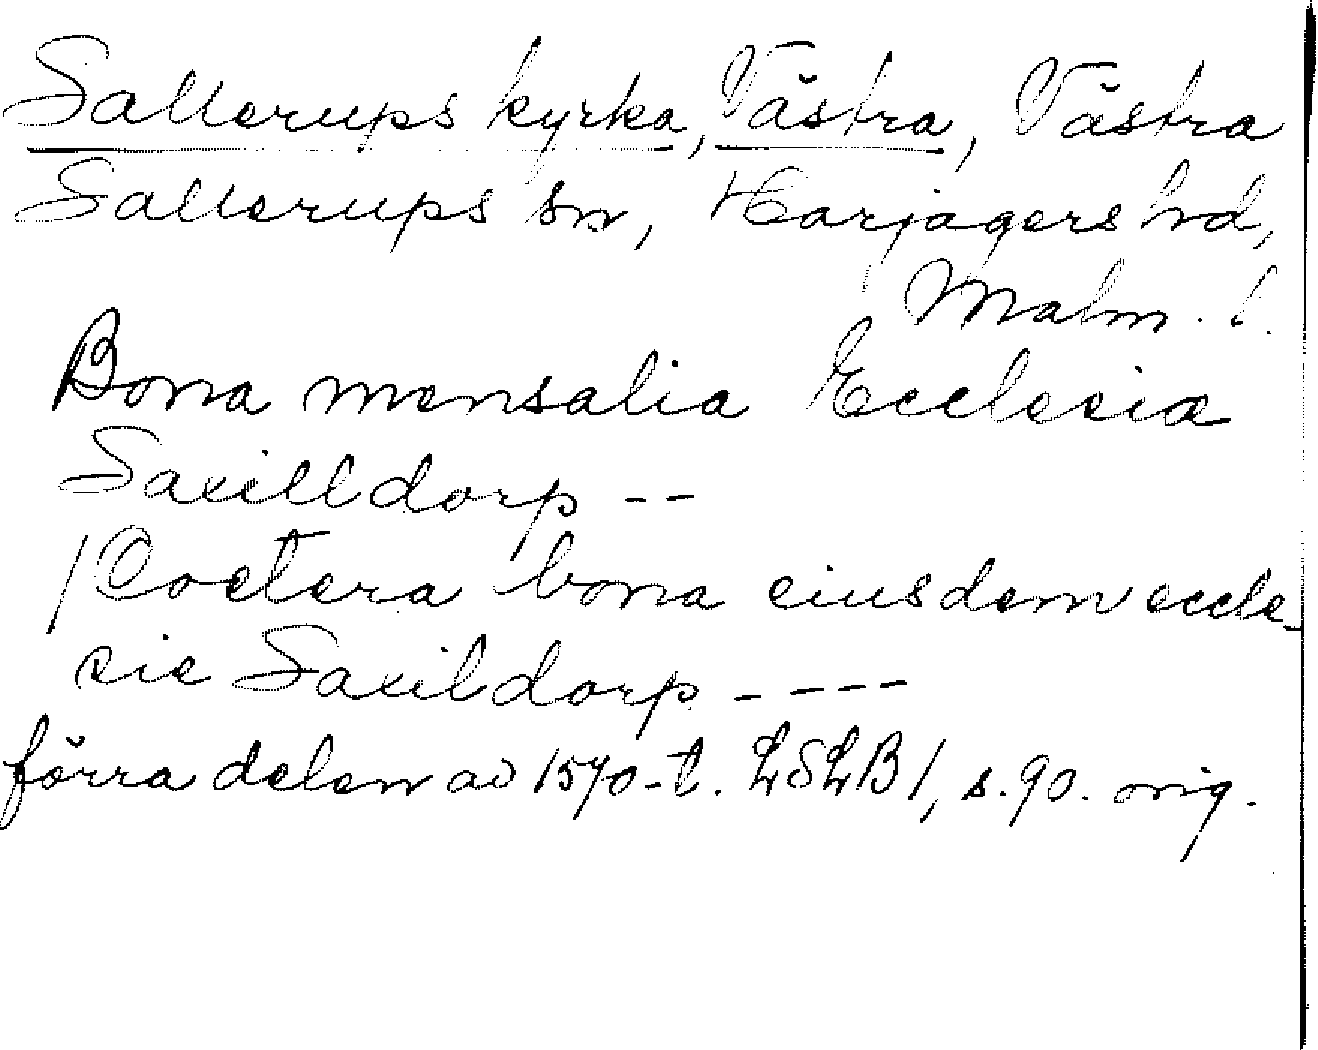 Sallerups kyrka, Västra, Västra
Sallerups sn, Harjagers hd,
Malm. l.
Bona mensalia Ecclesiæ
Saxilldorp --
/Coetera bona eiusdem eccle-
sie Saxildorp ----
förra delen av 1570-t. LSLB 1, s. 90. orig.